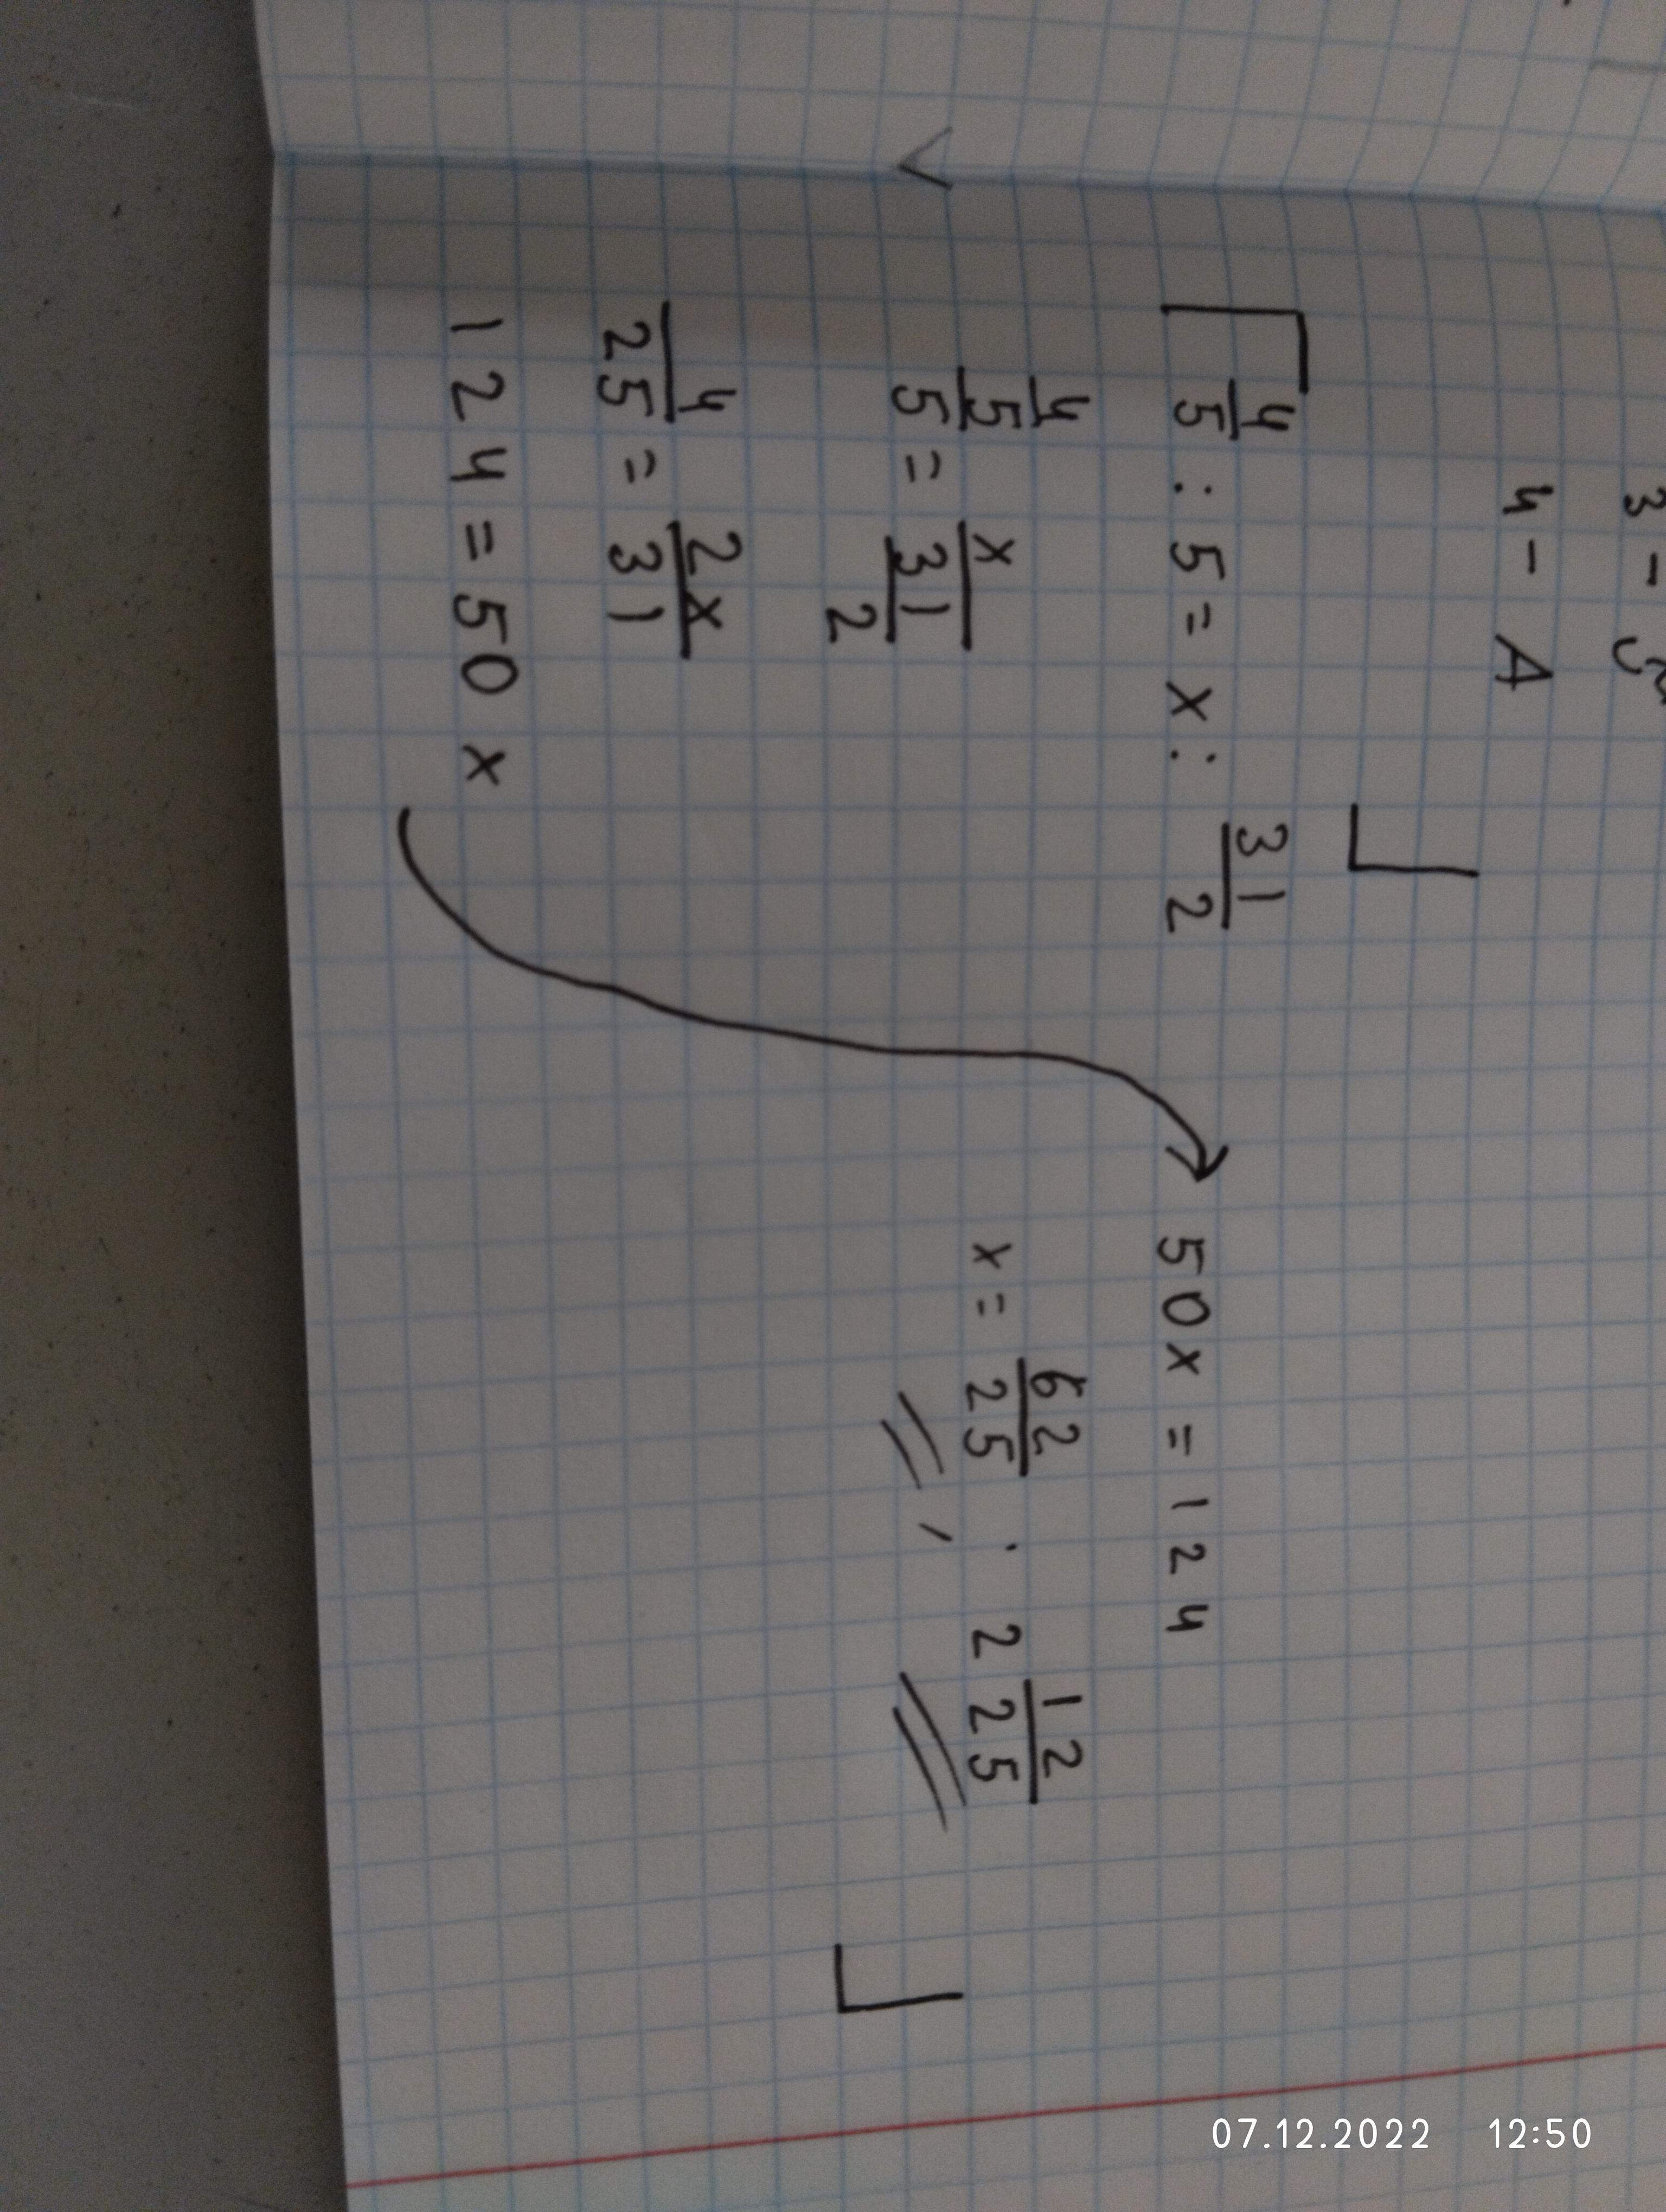 4 - A
4/5 : 5 = x : 31/2
4/5/5 = x/31/2
4/25 = 2x/31
124 = 50x
50x = 124
x = 62/25 ; 2 12/25
07.12.2022 12:50